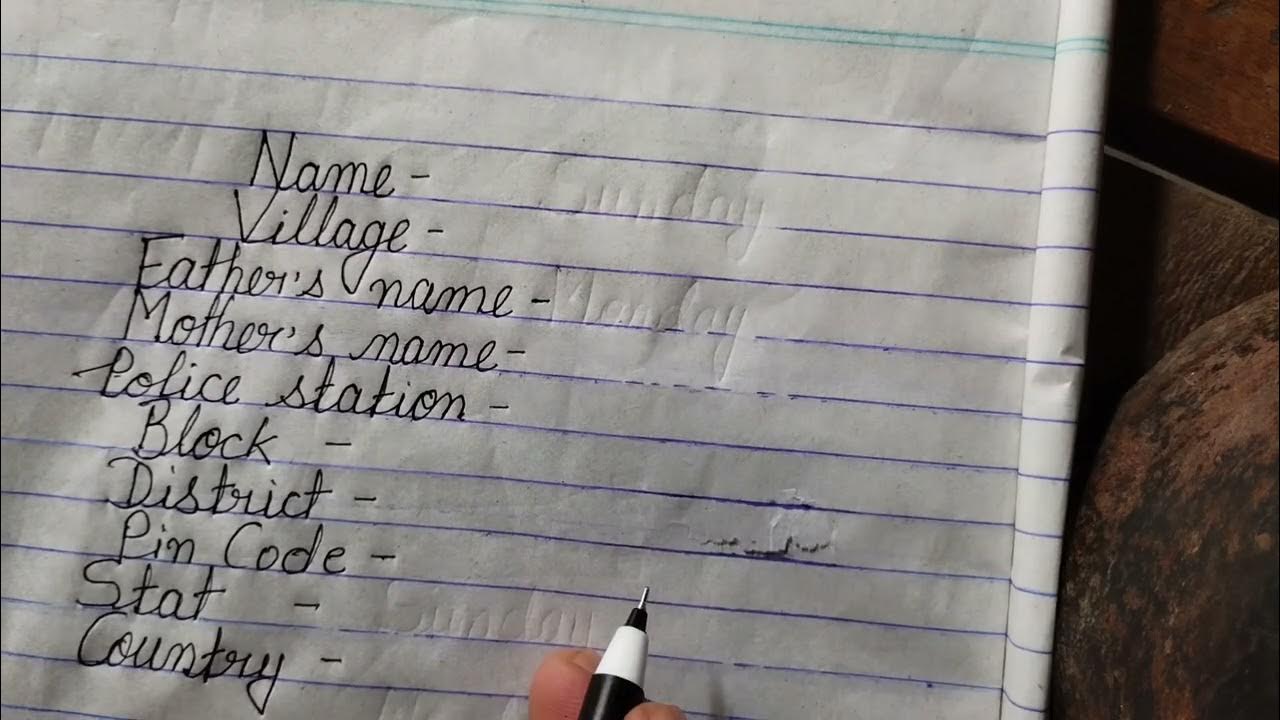 Name -
Sunday
Village -
Father's name -
Monday
Mother's name -
Police station -
Block -
District -
Pin Code -
Stat -
Sunday
Country -